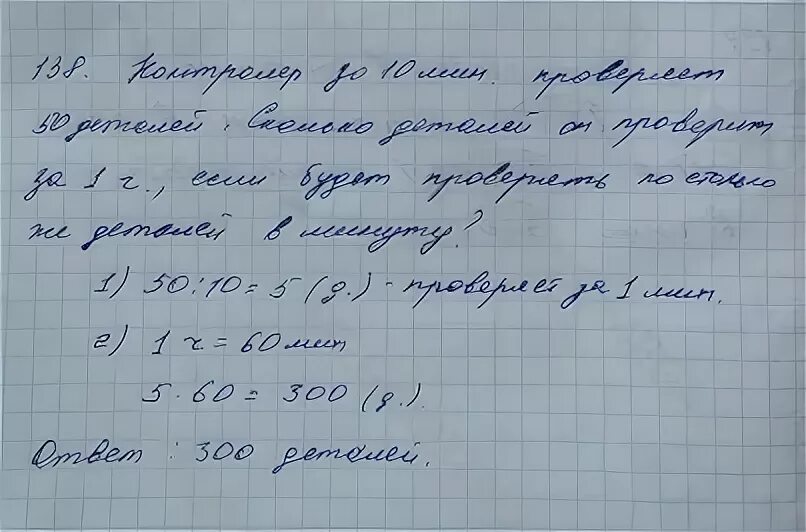 138. Контролер за 10 мин. проверяет
50 деталей. Сколько деталей он проверит
за 1 ч., если будет проверять по столько
же деталей в минуту?
1) 50:10=5 (д.) - проверяет за 1 мин.
2) 1 ч = 60 мин
5·60 = 300 (д.).
Ответ: 300 деталей.